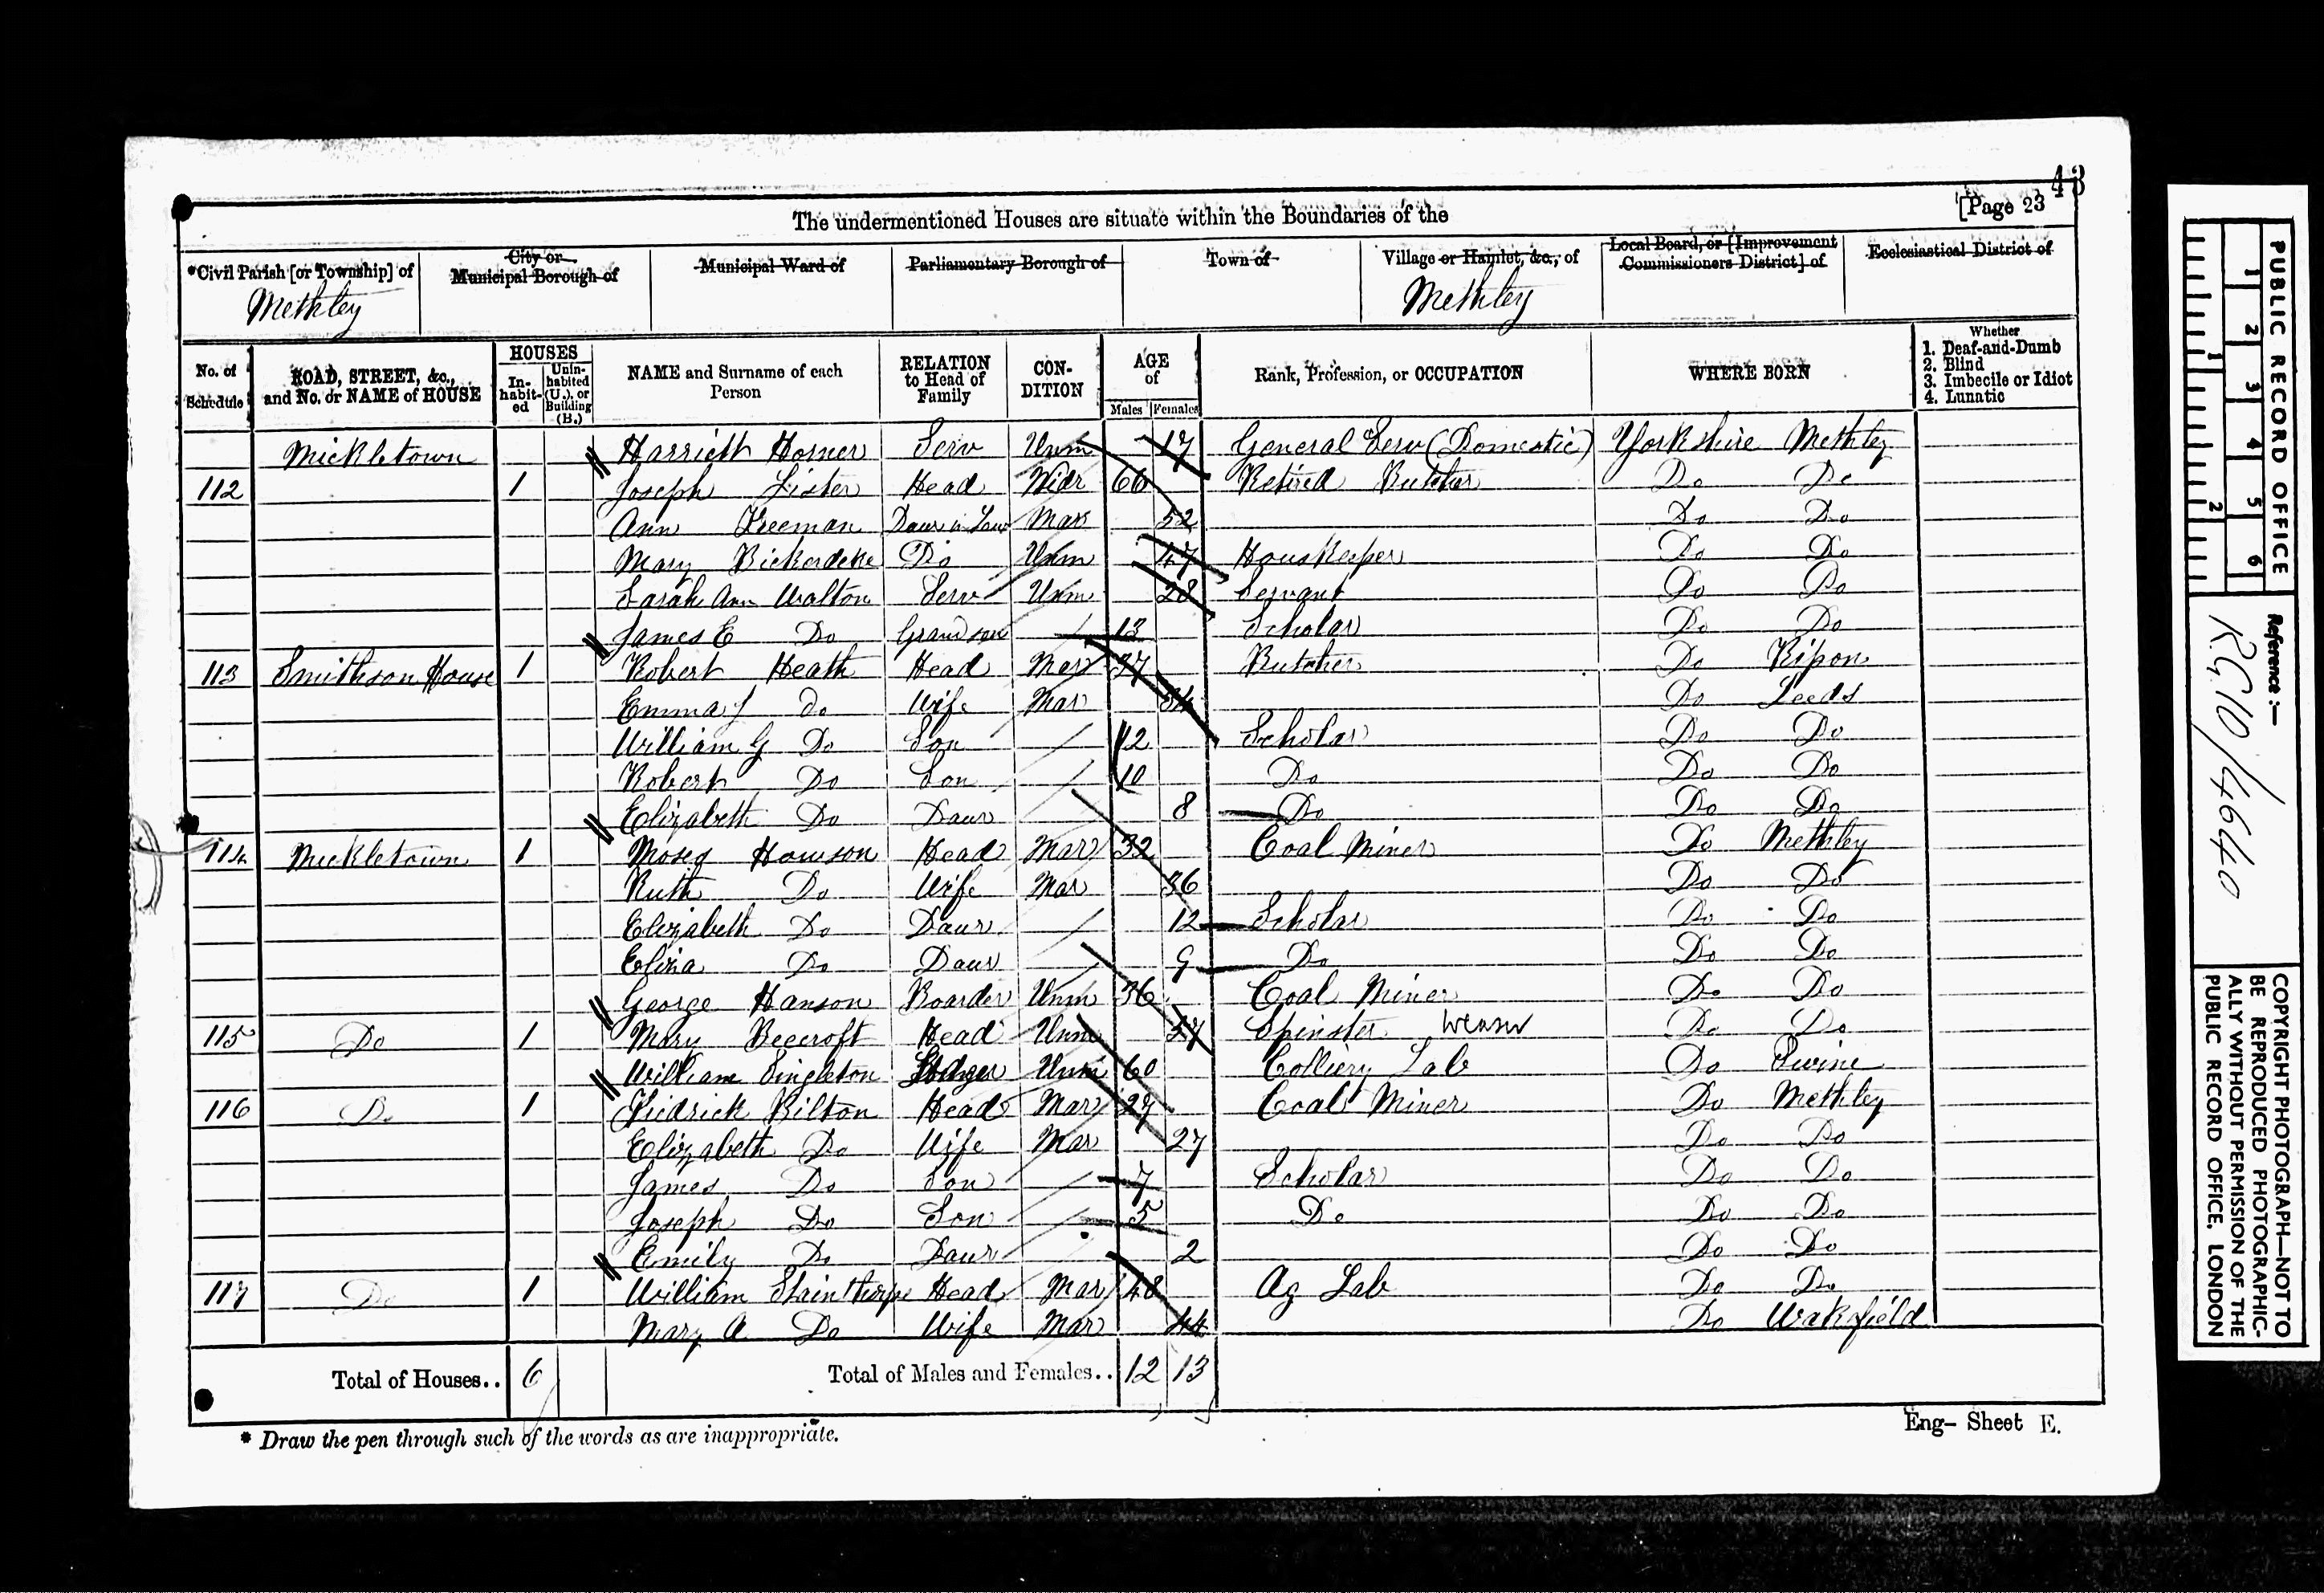 43
[Page 23
The undermentioned Houses are situate within the Boundaries of the
*Civil Parish [or Township] of Methley
City or Municipal Borough of
Municipal Ward of
Parliamentary Borough of
Town of
Village or Hamlet, &c., of Methley
Local Board, or [Improvement Commissioners District] of
Ecclesiastical District of
No. of Schedule
ROAD, STREET, &c., and No. or NAME of HOUSE
HOUSES
In-habit-ed
Unin-habited (U.), or Building (B.)
NAME and Surname of each Person
RELATION to Head of Family
CON-DITION
AGE of
Males Females
Rank, Profession, or OCCUPATION
WHERE BORN
Whether
1. Deaf-and-Dumb
2. Blind
3. Imbecile or Idiot
4. Lunatic
Mickletown Harriett Horner Serv Unm 17 General Serv (Domestic) Yorkshire Methley
112 1 Joseph Lister Head Widr 66 Retired Butcher Do Do
Ann Freeman Daur in Law Mar 52 Do Do
Mary Bickerdeke Do Unm 47 Houskeeper Do Do
Sarah Ann Walton Serv Unm 28 Servant Do Do
James E Do Grandson 13 Scholar Do Do
113 Smithson House 1 Robert Heath Head Mar 37 Butcher Do Ripon
Emma J Do Wife Mar 34 Do Leeds
William G Do Son 12 Scholar Do Do
Robert Do Son 10 Do Do Do
Elizabeth Do Daur 8 Do Do Do
114 Mickletown 1 Moses Howson Head Mar 32 Coal Miner Do Methley
Ruth Do Wife Mar 36 Do Do
Elizabeth Do Daur 12 Scholar Do Do
Eliza Do Daur 9 Do Do Do
George Hanson Boarder Unm 36 Coal Miner Do Do
115 Do 1 Mary Beecroft Head Unm 57 Spinster Weaver Do Do
William Singleton Lodger Unm 60 Colliery Lab Do Swine
116 Do 1 Fredrick Bilton Head Mar 27 Coal Miner Do Methley
Elizabeth Do Wife Mar 27 Do Do
James Do Son 7 Scholar Do Do
Joseph Do Son 5 Do Do Do
Emily Do Daur 2 Do Do
117 Do 1 William Stainthorpe Head Mar 48 Ag Lab Do Do
Mary A Do Wife Mar 44 Do Wakefield
Total of Houses.. 6 Total of Males and Females.. 12 13
* Draw the pen through such of the words as are inappropriate.
Eng- Sheet E.
PUBLIC RECORD OFFICE
1 2 3 4 5 6
1 2
Reference :-
R.G. 10/4640
COPYRIGHT PHOTOGRAPH—NOT TO
BE REPRODUCED PHOTOGRAPHIC-
ALLY WITHOUT PERMISSION OF THE
PUBLIC RECORD OFFICE, LONDON